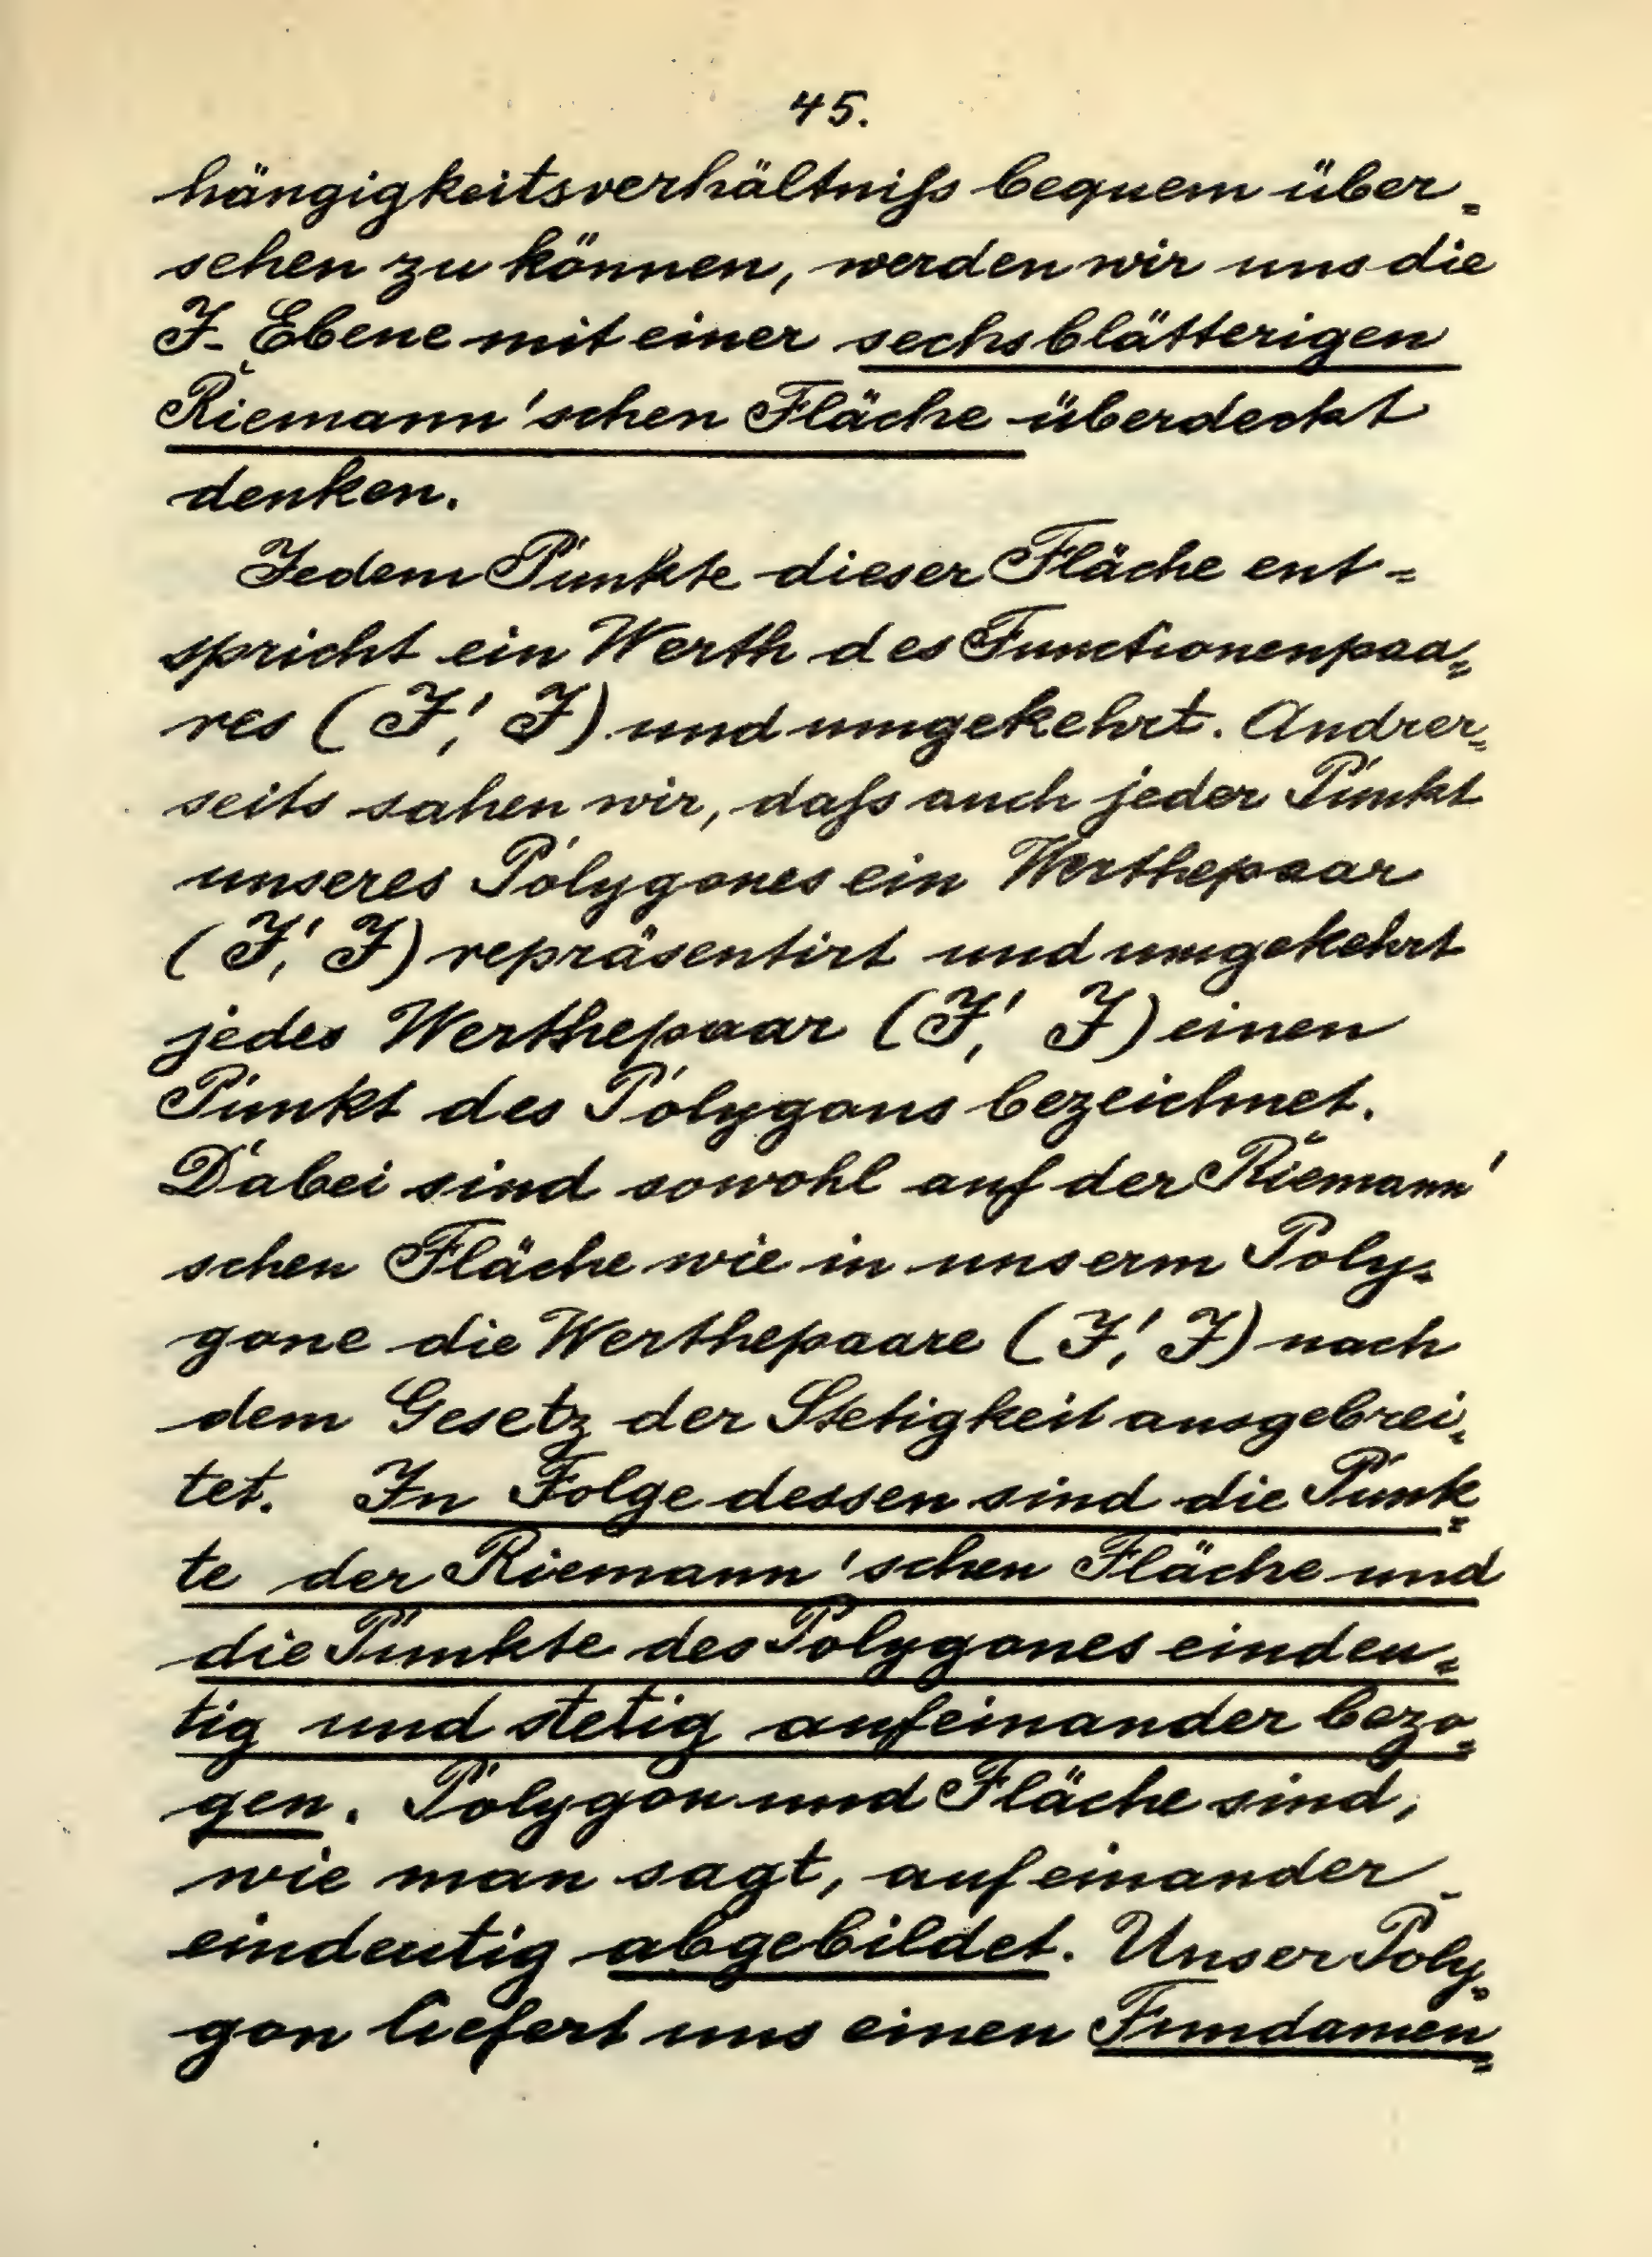 45.
hängigkeitsverhältniſs bequem über=
sehen zu können, werden wir uns die
J-Ebene mit einer sechsblätterigen
Riemann'schen Fläche überdeckt
denken.
Jedem Punkte dieser Fläche ent=
spricht ein Werth des Functionenpaa=
res (J', J) und umgekehrt. Andrer=
seits sahen wir, daſs auch jeder Punkt
unseres Polygones ein Werthepaar
(J', J) repräsentirt und umgekehrt
jedes Werthepaar (J', J) einen
Punkt des Polygons bezeichnet.
Dabei sind sowohl auf der Riemann'
schen Fläche wie in unserm Poly=
gone die Werthepaare (J', J) nach
dem Gesetz der Stetigkeit ausgebrei=
tet. In Folge dessen sind die Punk=
te der Riemann'schen Fläche und
die Punkte des Polygones eindeu=
tig und stetig aufeinander bezo=
gen. Polygon und Fläche sind,
wie man sagt, aufeinander
eindeutig abgebildet. Unser Poly=
gon liefert uns einen Fundamen=